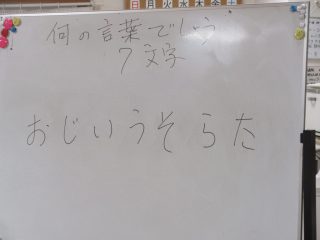 日 月 火 水 木 金 土
何の言葉でしょう
7文字
おじいうそらた